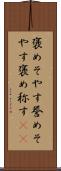 褒めそやす誉めそ
やす褒め称す